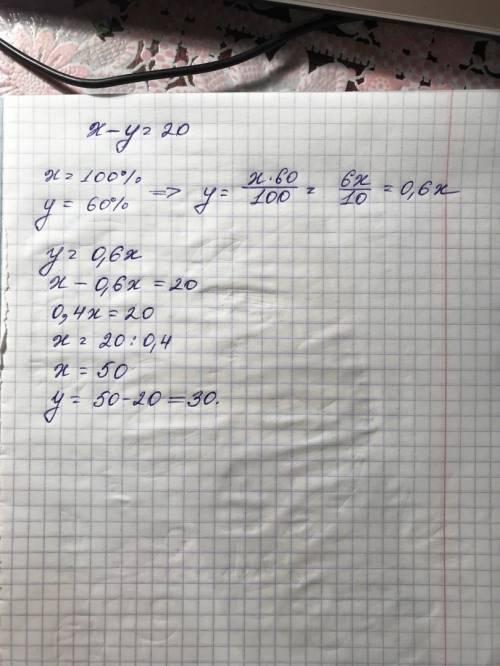 x - y = 20
x = 100%
y = 60%
=> y = x·60/100 = 6x/10 = 0,6x
y = 0,6x
x - 0,6x = 20
0,4x = 20
x = 20 : 0,4
x = 50
y = 50 - 20 = 30.